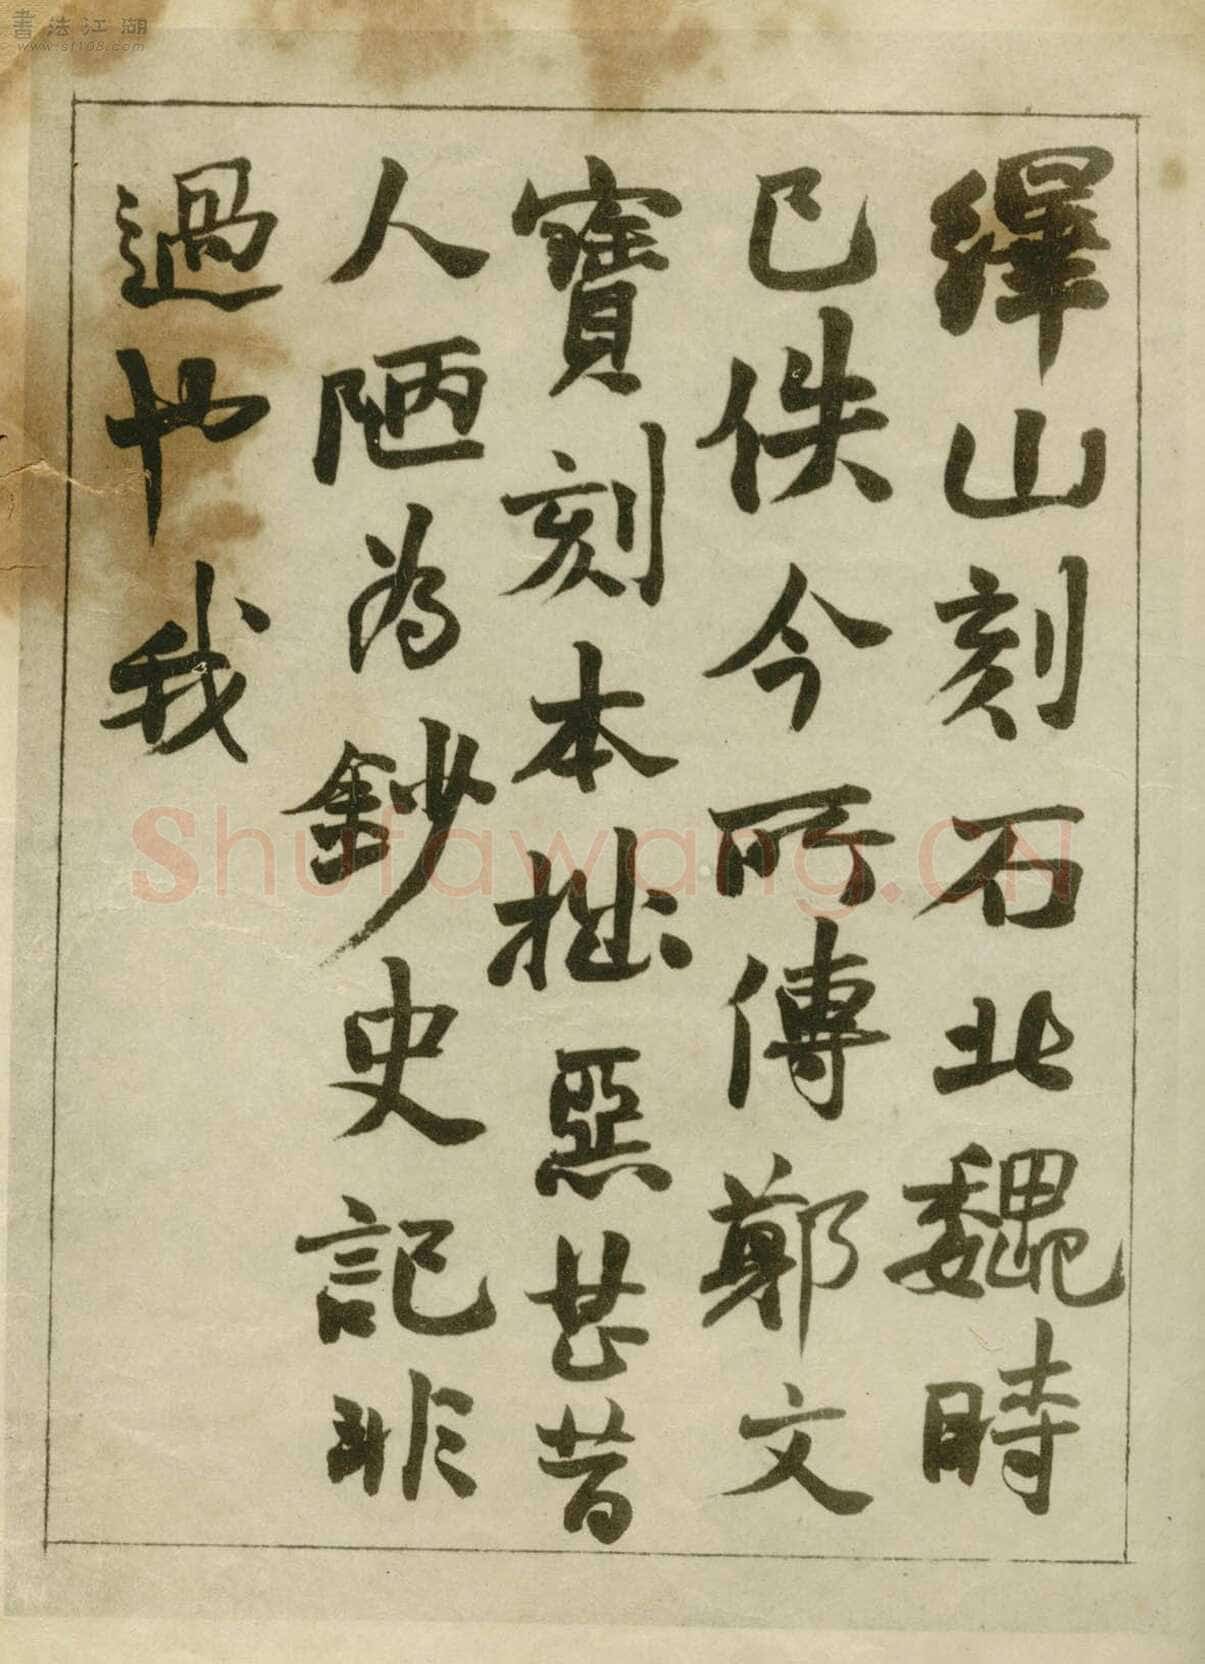 繹山刻石北魏時
已佚今所傳鄭文
寶刻本拙惡甚昔
人陋為鈔史記非
過也我
書法江湖
www.sf108.com
Shufawang.CN